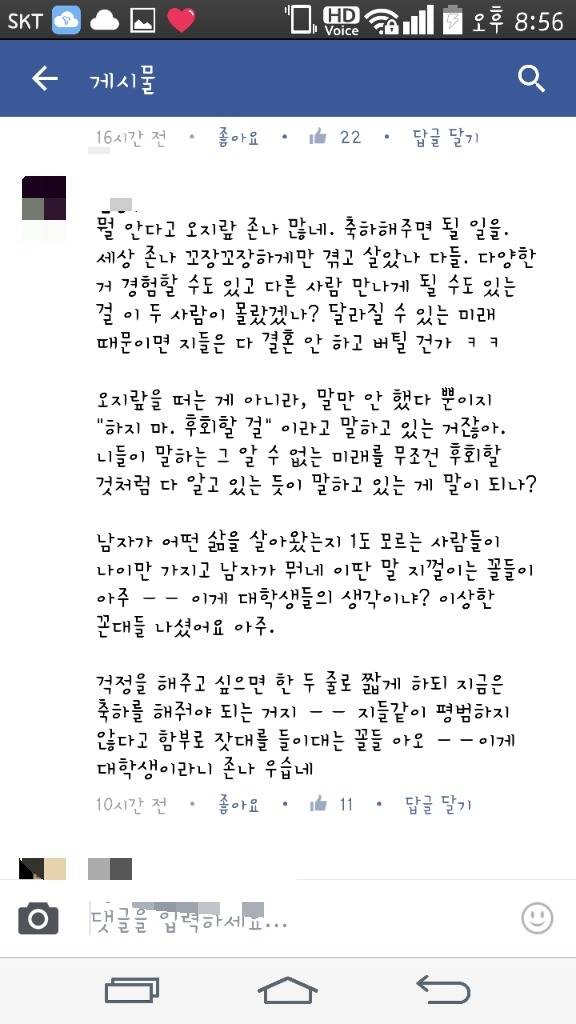 SKT HD Voice 오후 8:56
게시물
16시간 전 • 좋아요 • 22 • 답글 달기
뭘 안다고 오지랖 존나 많네. 축하해주면 될 일을.
세상 존나 꼬장꼬장하게만 겪고 살았나 다들. 다양한
거 경험할 수도 있고 다른 사람 만나게 될 수도 있는
걸 이 두 사람이 몰랐겠나? 달라질 수 있는 미래
때문이면 지들은 다 결혼 안 하고 버틸 건가 ㅋㅋ
오지랖을 떠는 게 아니라, 말만 안 했다 뿐이지
"하지 마. 후회할 걸" 이라고 말하고 있는 거잖아.
니들이 말하는 그 알 수 없는 미래를 무조건 후회할
것처럼 다 알고 있는 듯이 말하고 있는 게 말이 되나?
남자가 어떤 삶을 살아왔는지 1도 모르는 사람들이
나이만 가지고 남자가 뭐네 이딴 말 지껄이는 꼴들이
아주 ㅡㅡ 이게 대학생들의 생각이냐? 이상한
꼰대들 나셨어요 아주.
걱정을 해주고 싶으면 한 두 줄로 짧게 하되 지금은
축하를 해줘야 되는 거지 ㅡㅡ 지들같이 평범하지
않다고 함부로 잣대를 들이대는 꼴들 아오 ㅡㅡ이게
대학생이라니 존나 우습네
10시간 전 • 좋아요 • 11 • 답글 달기
댓글을 입력하세요...